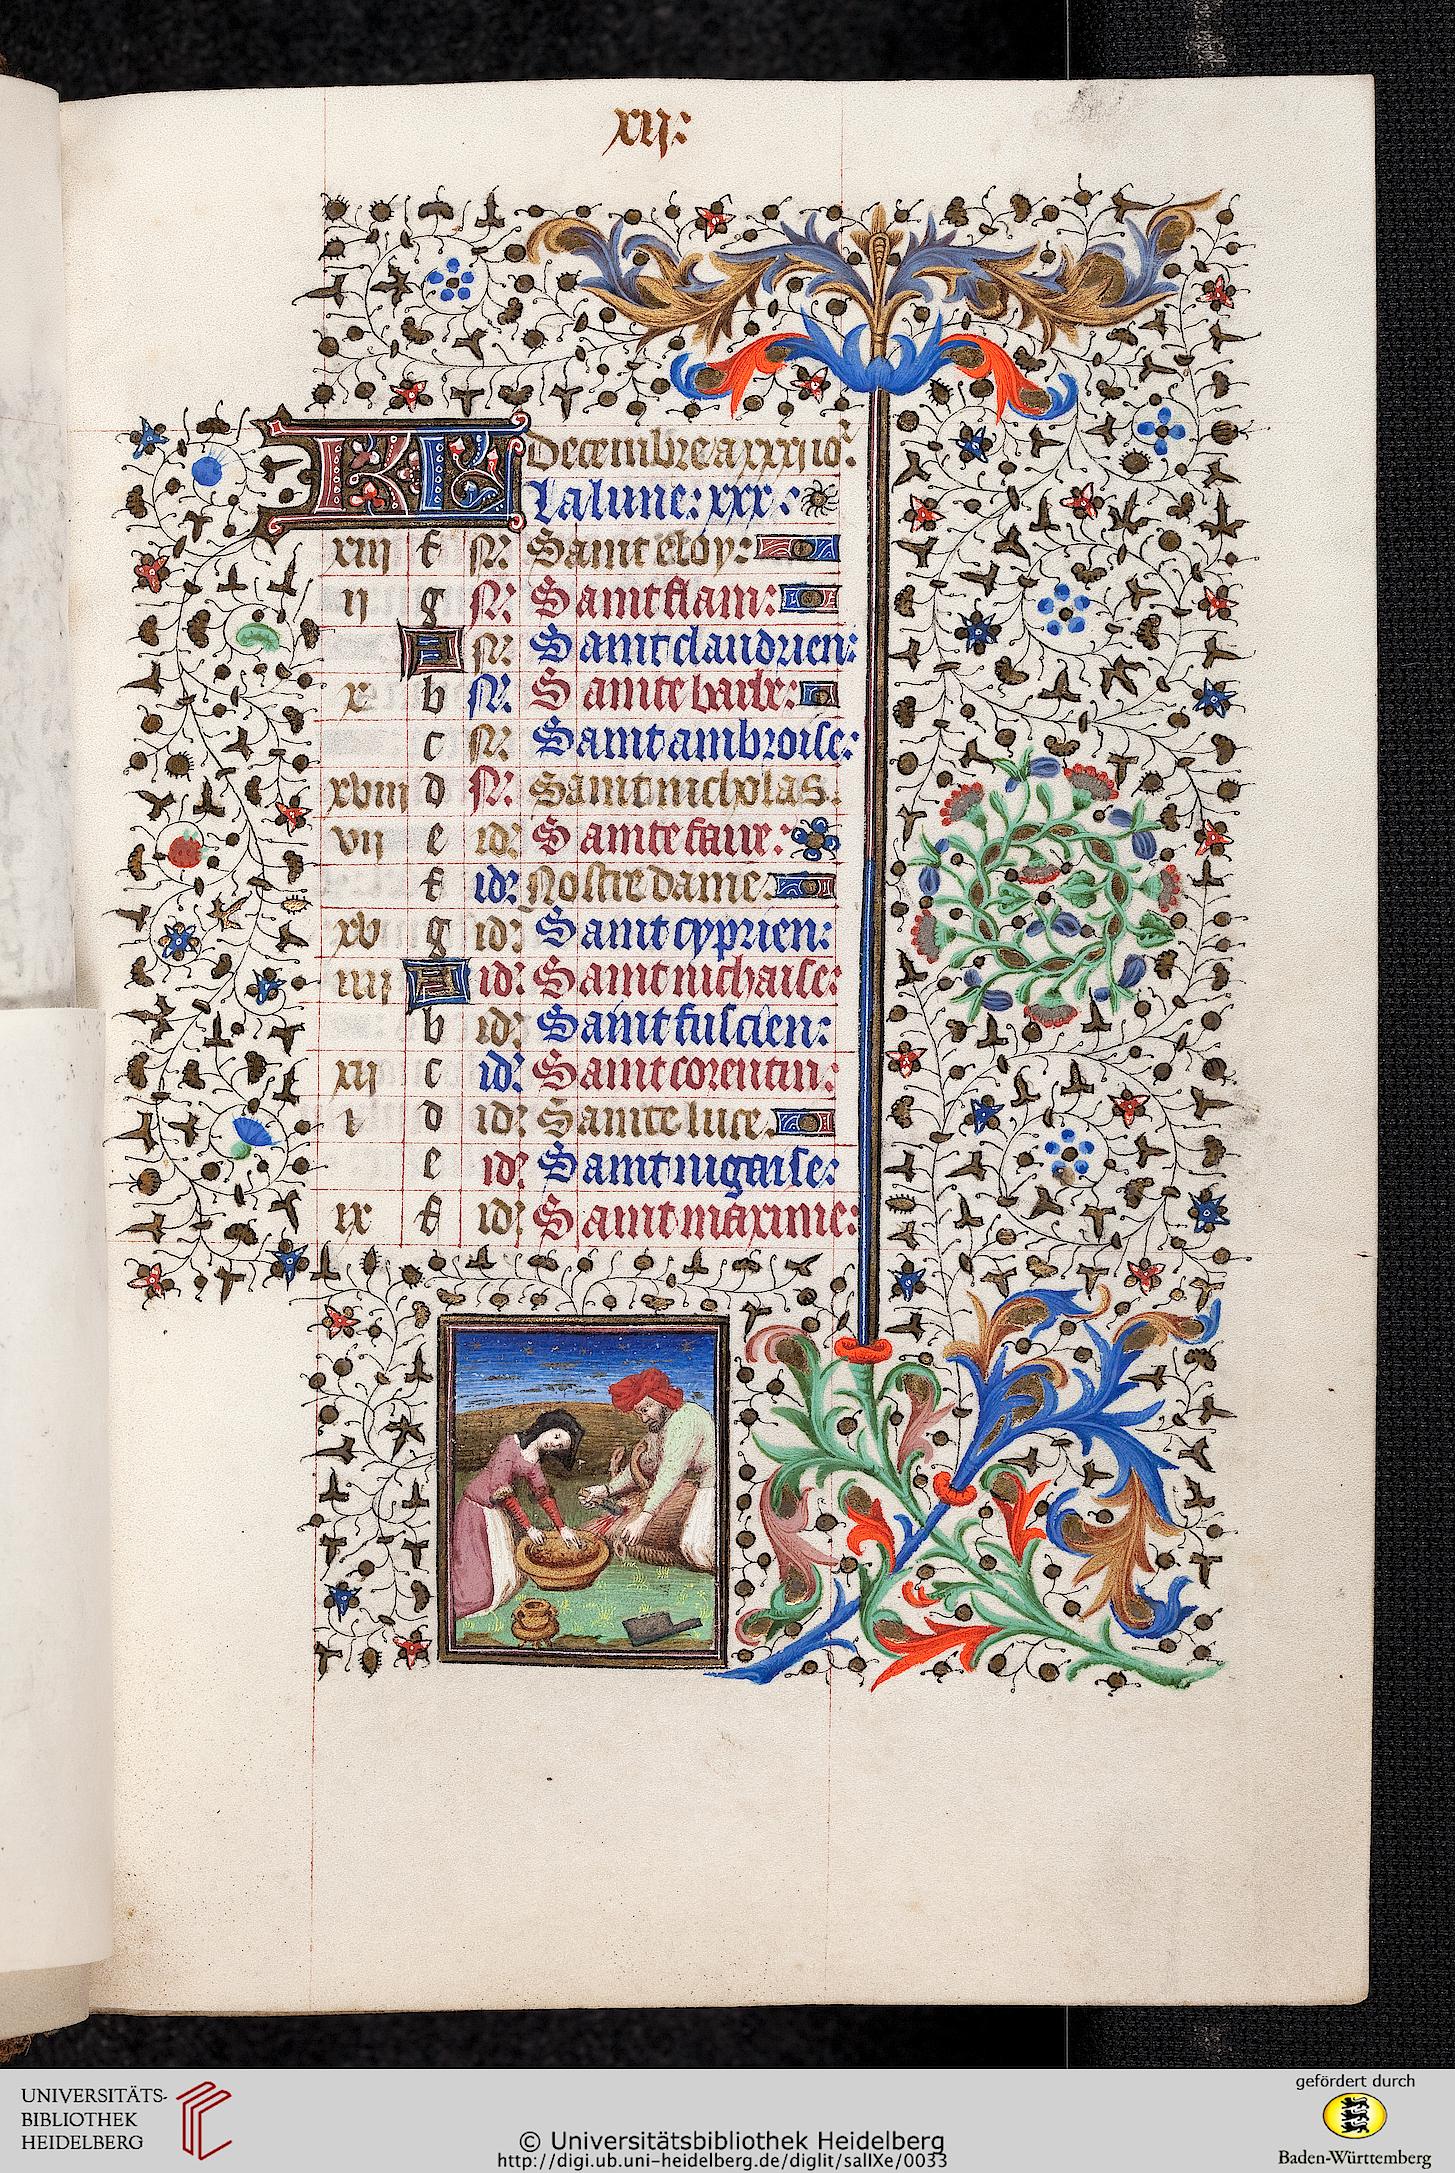 xij:
KL Decembre a xxxi io's:
La lune: xxx:
xiii f N: Saint eloy:
ij g N: Saint flam:
A N: Saint claudrien:
x b N: Sainte barbe:
c N: Saint ambroise:
xviii d N: Saint nicholas.
vij e id: Sainte faire:
f id: Nostre dame:
xv g id: Saint cyprien:
iiij A id: Saint nichaise:
b id: Saint fuscien:
xij c id: Saint corentin:
i d id: Sainte luce.
e id: Saint nigaise:
ix f id: Saint maxime:
UNIVERSITÄTS-
BIBLIOTHEK
HEIDELBERG
© Universitätsbibliothek Heidelberg
http://digi.ub.uni-heidelberg.de/diglit/salIXe/0033
gefördert durch
Baden-Württemberg